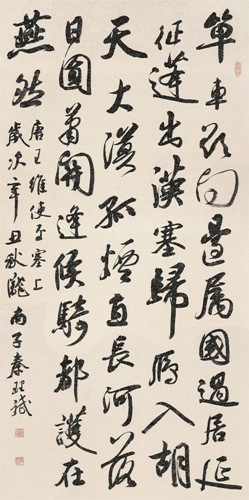 單車欲問邊屬國過居延
征蓬出漢塞歸鴈入胡
天大漠孤煙直長河落
日圓蕭關逢候騎都護在
燕然
唐王維使至塞上
歲次辛丑秋隴南子秦